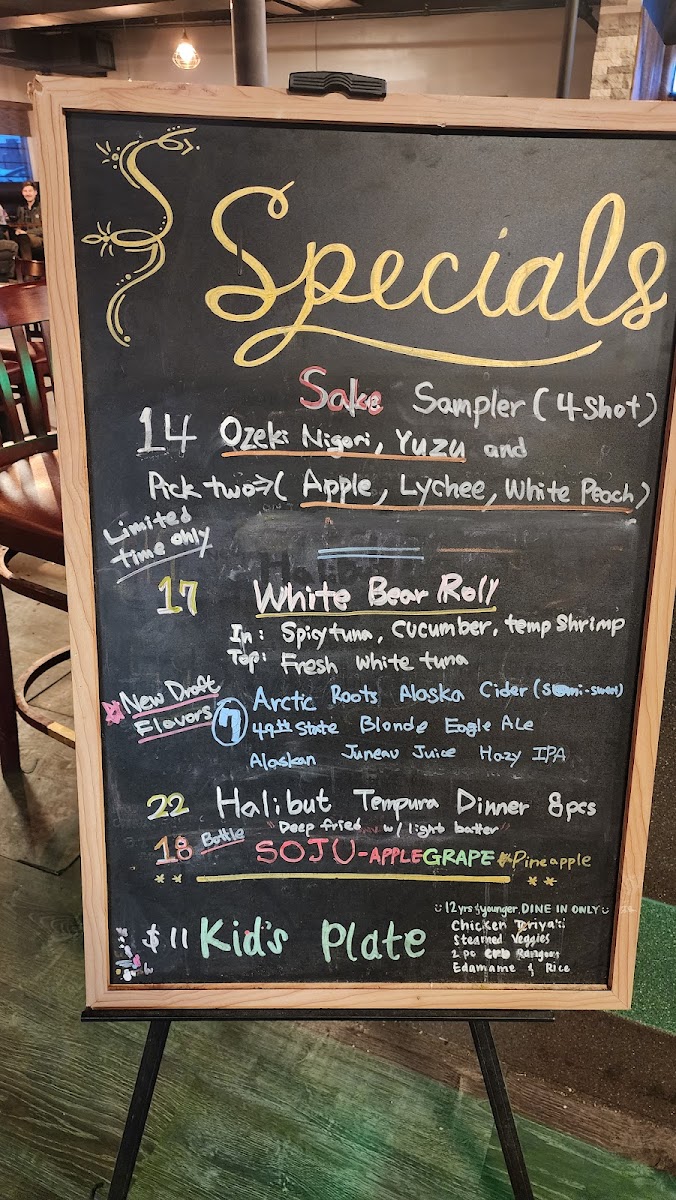 Specials
Sake Sampler (4 shot)
14 Ozeki Nigori, Yuzu and
Pick two → ( Apple, Lychee, White Peach )
Limited
time only
17 White Bear Roll
In: Spicy tuna, cucumber, temp shrimp
Top: Fresh white tuna
New Draft
Flavors
7 Arctic Roots Alaska Cider (semi-sweet)
49th State Blonde Eagle Ale
Alaskan Juneau Juice Hazy IPA
22 Halibut Tempura Dinner 8pcs
"Deep fried w/ light batter"
18 Bottle SOJU-APPLE GRAPE Pineapple
12 yrs & younger, DINE IN ONLY
$11 Kid's Plate
Chicken Teriyaki
Steamed Veggies
2 pc crab Rangoon
Edamame & Rice